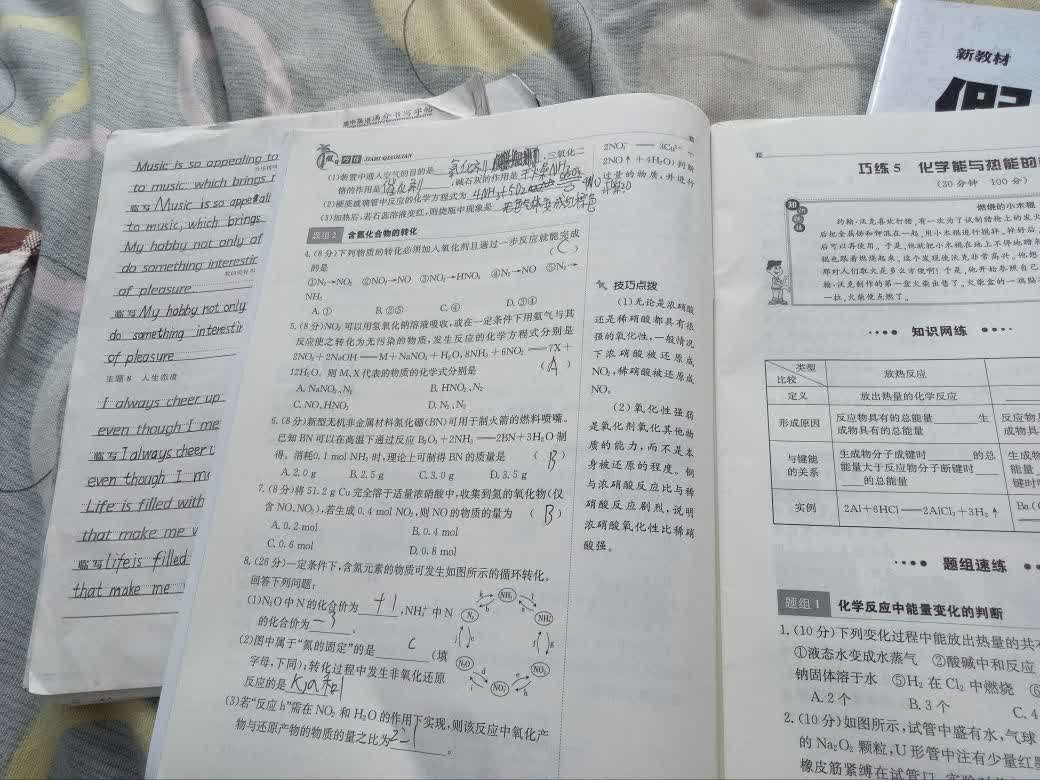 Music is so appealing to
to music, which brings
临写 Music is so
to music, which brings
My hobby not only of
do something interestin
of pleasure
临写 My hobby not only
do something interestin
of pleasure
主题8 人生态度
I always cheer up
even though I me
临写 I always cheer
even though I
Life is filled with
that make me
临写 life is filled
that make me
高中英语满分书写字帖
巧练 JIARI QIAOLIAN
(1)装置中通入空气的目的是 三氧化二
铬的作用是催化剂,碱石灰的作用是干燥NH₃
(2)硬质玻璃管中反应的化学方程式为
(3)加热后,若石蕊溶液变红,则烧瓶中现象是
题组2 含氮化合物的转化
4.(8分)下列物质的转化必须加入氧化剂且通过一步反应就能完成
的是 (C)
①N₂→NO₂ ②NO₂→NO ③NO₂→HNO₃ ④N₂→NO ⑤N₂→
NH₃
A.① B.②⑤ C.④ D.③④
5.(8分)NO₂可以用氢氧化钠溶液吸收,或在一定条件下用氨气与其
反应使之转化为无污染的物质,发生反应的化学方程式分别是
2NO₂+2NaOH══M+NaNO₂+H₂O,8NH₃+6NO₂══7X+
12H₂O。则M、X代表的物质的化学式分别是 (A)
A.NaNO₃、N₂ B.HNO₃、N₂
C.NO、HNO₃ D.N₂、N₂
6.(8分)新型无机非金属材料氮化硼(BN)可用于制火箭的燃料喷嘴。
已知BN可以在高温下通过反应B₂O₃+2NH₃══2BN+3H₂O制
得。消耗0.1 mol NH₃时,理论上可制得BN的质量是 (B)
A.2.0 g B.2.5 g C.3.0 g D.3.5 g
7.(8分)将51.2 g Cu完全溶于适量浓硝酸中,收集到氮的氧化物(仅
含NO、NO₂),若生成0.4 mol NO₂,则NO的物质的量为 (B)
A.0.2 mol B.0.4 mol
C.0.6 mol D.0.8 mol
8.(26分)一定条件下,含氮元素的物质可发生如图所示的循环转化。
回答下列问题:
(1)N₂O中N的化合价为 +1 ,NH₄⁺中N
的化合价为 -3 。
(2)图中属于“氮的固定”的是 c (填
字母,下同);转化过程中发生非氧化还原
反应的是 k、a和l
(3)若“反应h”需在NO₂和H₂O的作用下实现,则该反应中氧化产
物与还原产物的物质的量之比为 2:1 。
2NO₃⁻══3Cu²⁺+
2NO↑+4H₂O)判断
过量的物质,并进行
计算。
技巧点拨
(1)无论是浓硝酸
还是稀硝酸都具有很
强的氧化性,一般情况
下浓硝酸被还原成
NO₂,稀硝酸被还原成
NO。
(2)氧化性强弱
是氧化剂氧化其他物
质的能力,而不是本
身被还原的程度。铜
与浓硝酸反应比与稀
硝酸反应剧烈,说明
浓硝酸氧化性比稀硝
酸强。
新教材
假
巧练5 化学能与热能的
(30分钟 100分)
燃烧的小木棍
约翰·沃克喜欢打猎,有一次为了试制猎枪上的发火
后可以再使用。于是,他就把小木棍在地上不停地
也跟着燃烧起来,这个发现使沃克非常高兴,他想
那对人们取火是多么方便啊!于是,他开始参照自己
翰·沃克制作的第一盒火柴出售了。火柴盒的一端贴
一拉,火柴便点燃了。
知识网练
类型
比较
放热反应
定义 放出热量的化学反应
形成原因 反应物具有的总能量____生
成物具有的总能量
反应物具
成物具
与键能
的关系
生成物分子成键时____的总
能量大于反应物分子断键时____
____的总能量
生成物
能量
键时
实例 2Al+6HCl══2AlCl₃+3H₂↑
题组速练
题组1 化学反应中能量变化的判断
1.(10分)下列变化过程中能放出热量的共
①液态水变成水蒸气 ②酸碱中和反应
钠固体溶于水 ⑤H₂在Cl₂中燃烧
A.2个 B.3个 C.4
2.(10分)如图所示,试管中盛有水,气球
的Na₂O₂颗粒,U形管中注有少量红墨
橡皮筋紧缚在试管口